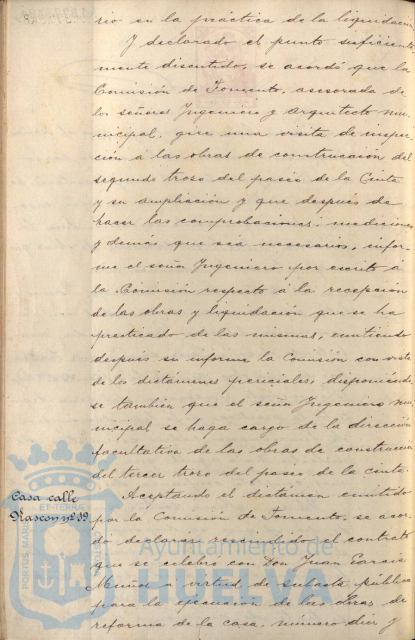 rio en la práctica de la liquidacion
Y declarado el punto suficiente
mente discutido, se acordó que la
Comisión de Fomento, asesorada de
los señores Ingeniero y Arquitecto mu-
nicipal, gire una visita de inspec-
ción á las obras de construcción del
segundo trozo del paseo de la Cinta
y su ampliación y que después de
hacer las comprobaciones, mediciones
y demás que sea necesarios, infor-
me el señor Ingeniero por escrito á
la Comisión respecto á la recepción
de las obras y liquidación que se ha
practicado de las mismas, emitiendo
después su informe la Comisión con vista
de los dictámenes periciales, disponiéndo
se también que el señor Ingeniero mu-
nicipal se haga cargo de la dirección
facultativa de las obras de construccion
del tercer trozo del paseo de la cinta.
Casa calle
Rascon nº 39
Aceptando el dictámen emitido
por la Comisión de Fomento, se acor-
dó declarar rescindido el contrato
que se celebró con Don Juan Garcia
Muñoz á virtud de subasta pública
para la ejecución de las obras de
reforma de la casa, número diez y
PORTUS MARIS
ET TERRÆ
Ayuntamiento de
HUELVA